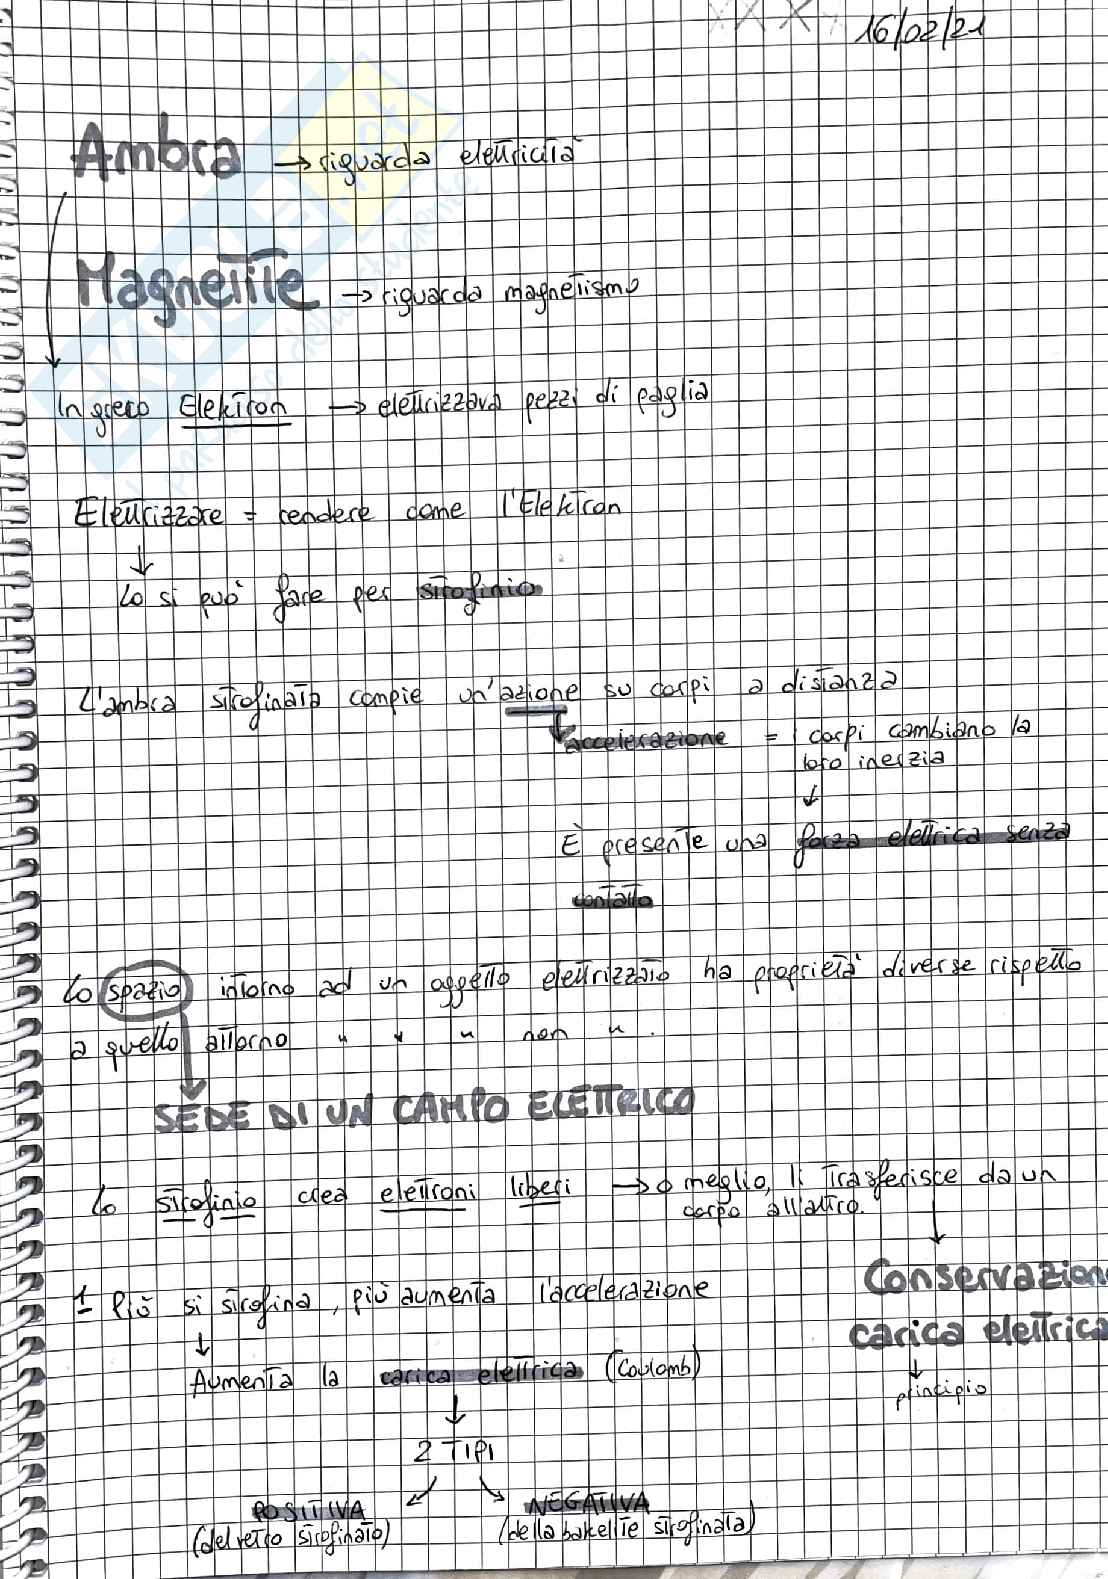 16/02/21
Ambra → riguarda elettricità
Magnetite → riguarda magnetismo
In greco Elektron → elettrizzava pezzi di paglia
Elettrizzare = rendere come l'Elektron
↓
Lo si può fare per strofinio
L'ambra strofinata compie un'azione su corpi a distanza
accelerazione = i corpi cambiano la
loro inerzia
↓
È presente una forza elettrica senza
contatto
Lo spazio intorno ad un oggetto elettrizzato ha proprietà diverse rispetto
a quello attorno " " " non ".
SEDE DI UN CAMPO ELETTRICO
Lo strofinio crea elettroni liberi → o meglio, li trasferisce da un
corpo all'altro.
Conservazione
carica elettrica
↓
principio
1- Più si strofina, più aumenta l'accelerazione
↓
Aumenta la carica elettrica (Coulomb)
↓
2 TIPI
POSITIVA
(del vetro strofinato)
NEGATIVA
(della bakelite strofinata)